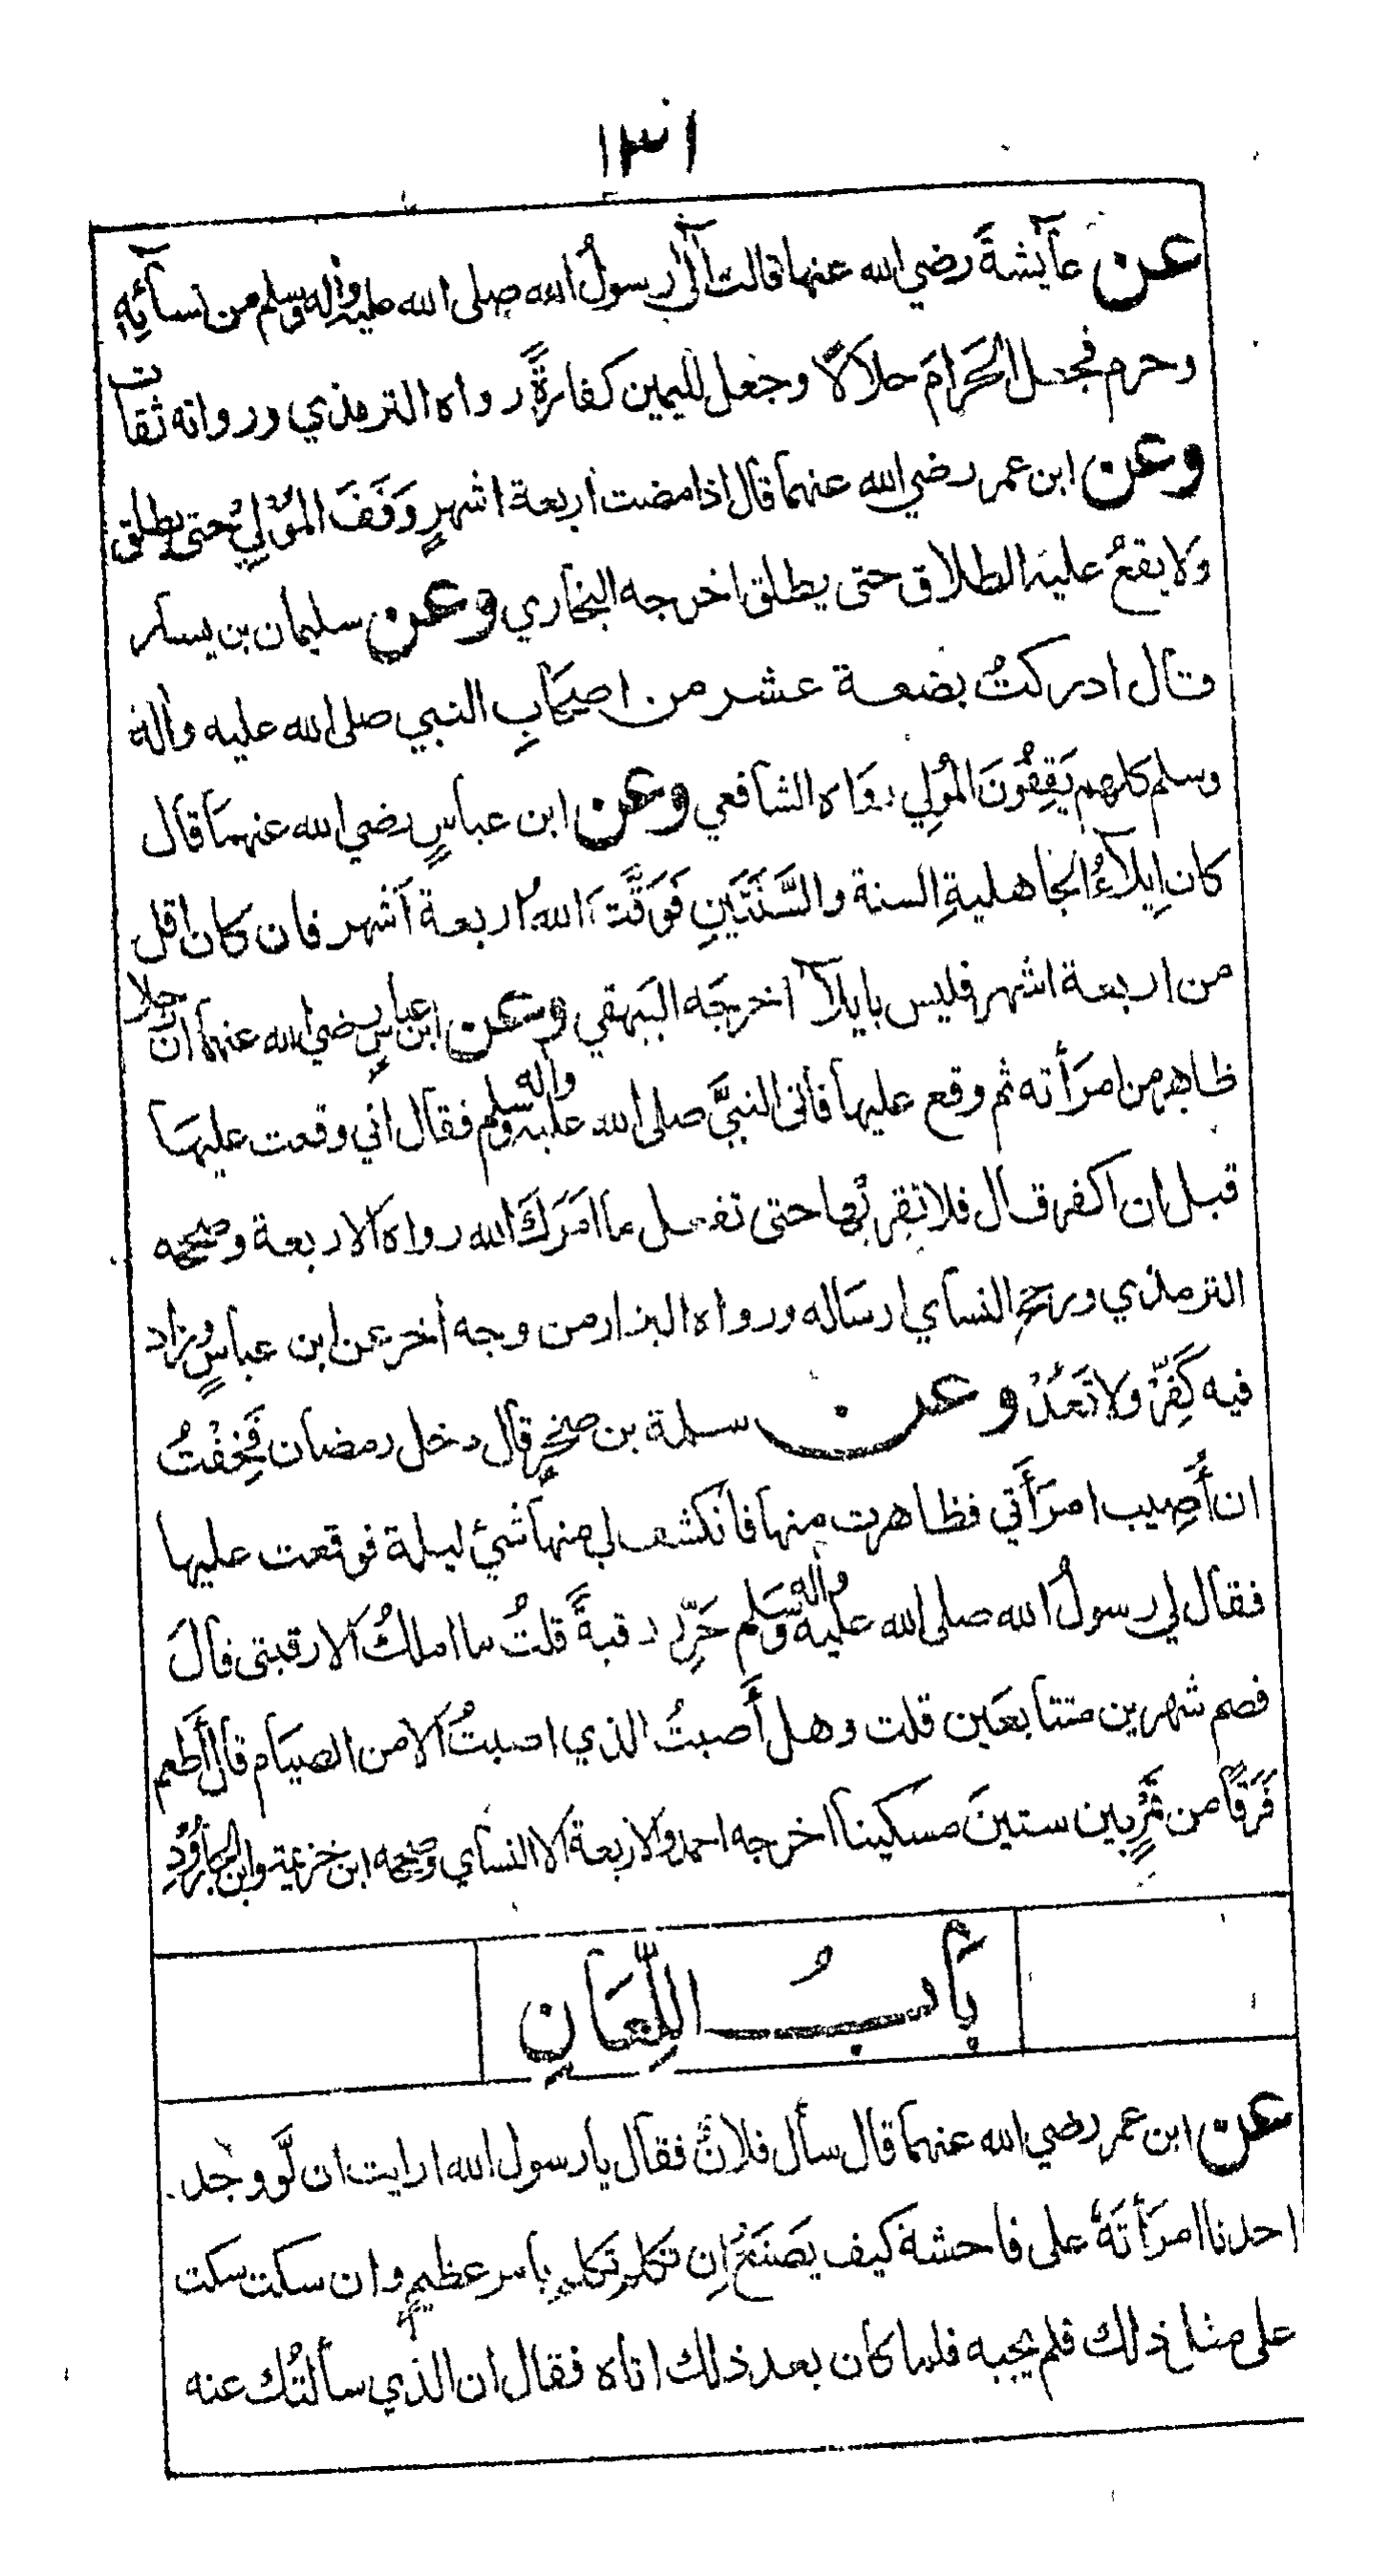 ١٣١
عن عآيشةَ رضي الله عنها قالت آلٰى رسولُ الله صلى الله عليه وآله وسلم من نسآئِهٖ
وحرم فجعل الحَرامَ حلالًا وجعل لليمين كفارةً رواه الترمذي ورواته ثقات
وعن ابن عمر رضي الله عنهما قال اذا مضت اربعة اشهرٍ وَقَفَ المُؤْلِيُ حتى يطلق
ولا يقعُ عليه الطلاق حتى يطلق اخرجه البخاري وعن سليمان بن يسار
قال ادركتُ بضعة عشر من اصحَابِ النبي صلى الله عليه وآله
وسلم كلهم يَقِفُونَ المُولِي رواه الشافعي وعن ابن عباسٍ رضي الله عنهما قال
كان اِيلآءُ الجاهليةِ السنة والسَّنَتَينِ فَوَقَّتَ اللهُ اربعة أشهر فان كان اقل
من اربعة اشهر فليس بايلآء اخرجَه البيهقي وعن ابن عباسٍ رضي الله عنهما ان رجلا
ظاهر من امرَأته ثم وقع عليها فأتى النبيَّ صلى الله عليه وآله وسلم فقال اني وقعت عليهَا
قبل ان اكفر قال فلا تقربْها حتى تفعل ما امَرَكَ الله رواه الاربعة وصححه
الترمذي ورجح النسآي ارسَاله ورواه البزار من وجه أخر عن ابن عباسٍ وزاد
فيه كَفِّرْ ولا تَعُدْ وعن سلمة بن صخرٍ قال دخل رمضان فَخِفْتُ
ان أُصِيب امرَأَتي فظاهرت منها فانكشف لي منها شيئ ليلة فوقعت عليها
فقال لي رسولُ الله صلى الله عليه وآله وَسَلم حَرِّر رقبةً قلتُ ما املكُ الا رقبتى قالَ
فصم شهرين متتابعَين قلت وهل أَصبتُ الذي اصبتُ الا من الصيَام قال أَطعم
فَرَقًا من تَمْرٍ بين ستينَ مسكينا اخرجه احمد والاربعة الا النسآي وصححه ابن خزيمة وابن الجارُوْدِ
بَابُ اللِّعَانِ
عن ابن عمر رضي الله عنهما قال سأل فلانٌ فقال يا رسول الله ارايت ان لَّو وجد
احدنا امرَأتَهٗ على فاحشة كيف يَصْنَعُ اِن تكلم تكلم بامر عظيمٍ وان سكت سكت
على مثل ذلك فلم يجبه فلما كان بعد ذلك اتاه فقال ان الذي سألتُك عنه